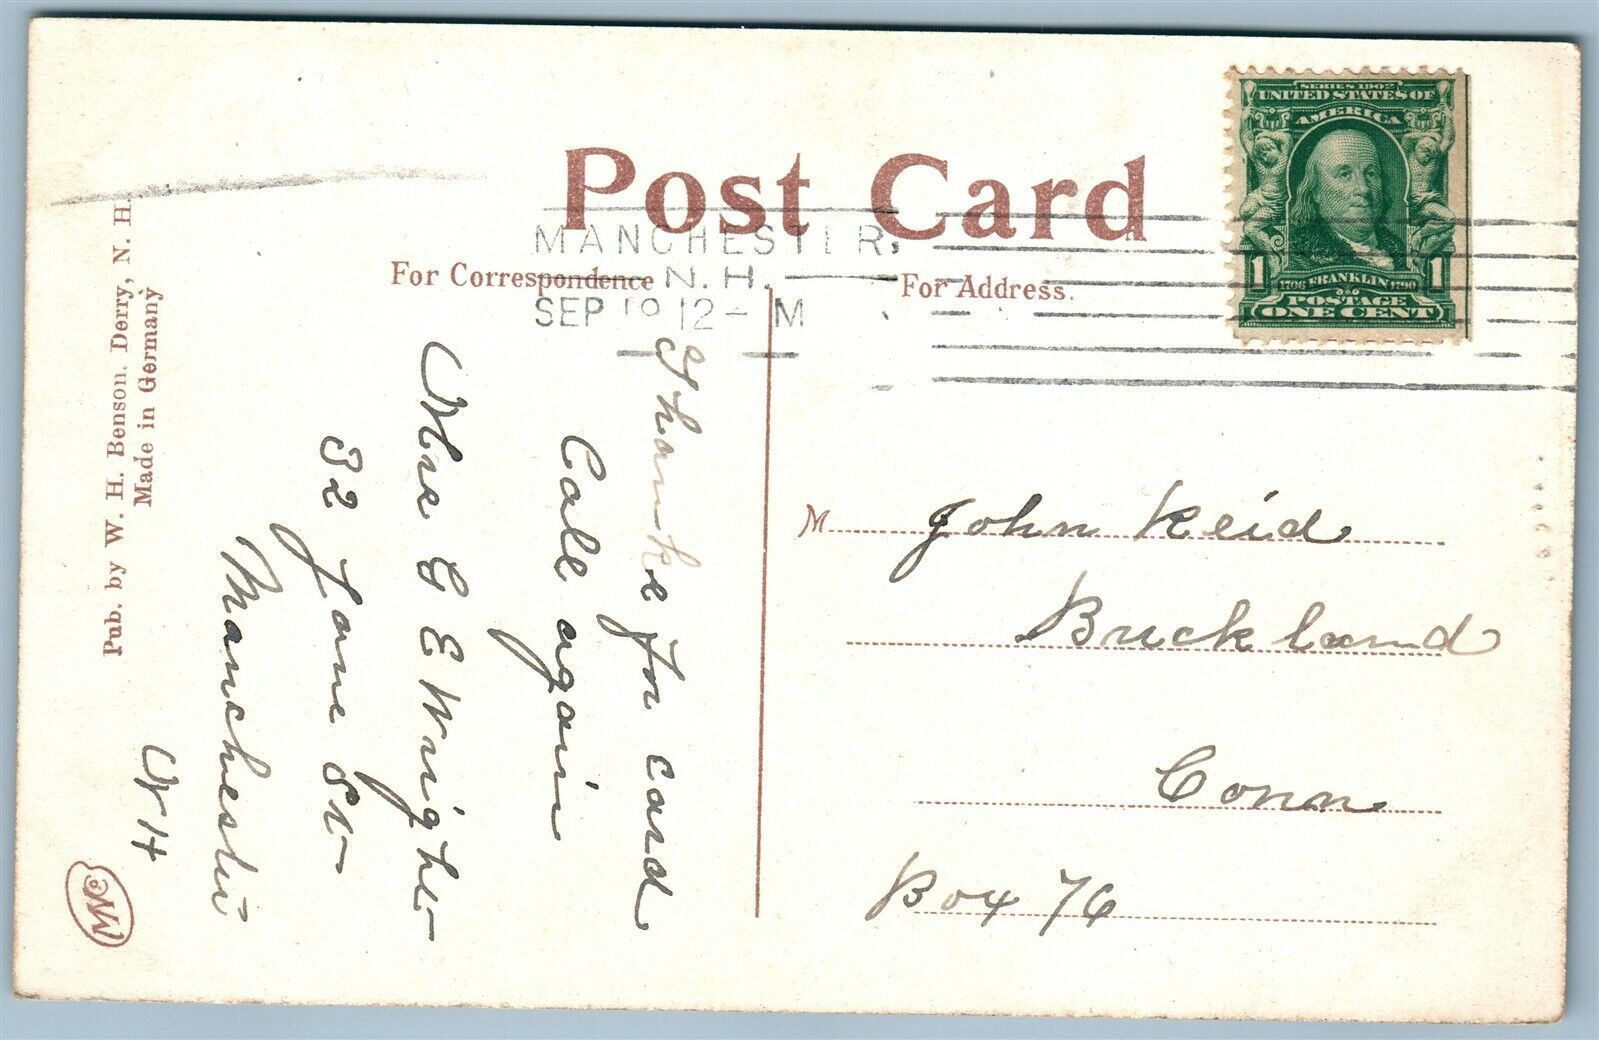 Post Card
MANCHESTER,
N.H.
SEP 19 12 - M
For Correspondence
For Address.
SERIES 1902
UNITED STATES OF
AMERICA
1706 FRANKLIN 1790
1 1
POSTAGE
ONE CENT
Thanks for card
Call again
Mrs G E Wright
32 Lane St
Manchester
N H
M John Reid
Buckland
Conn
Box 76
Pub. by W. H. Benson, Derry, N. H.
Made in Germany